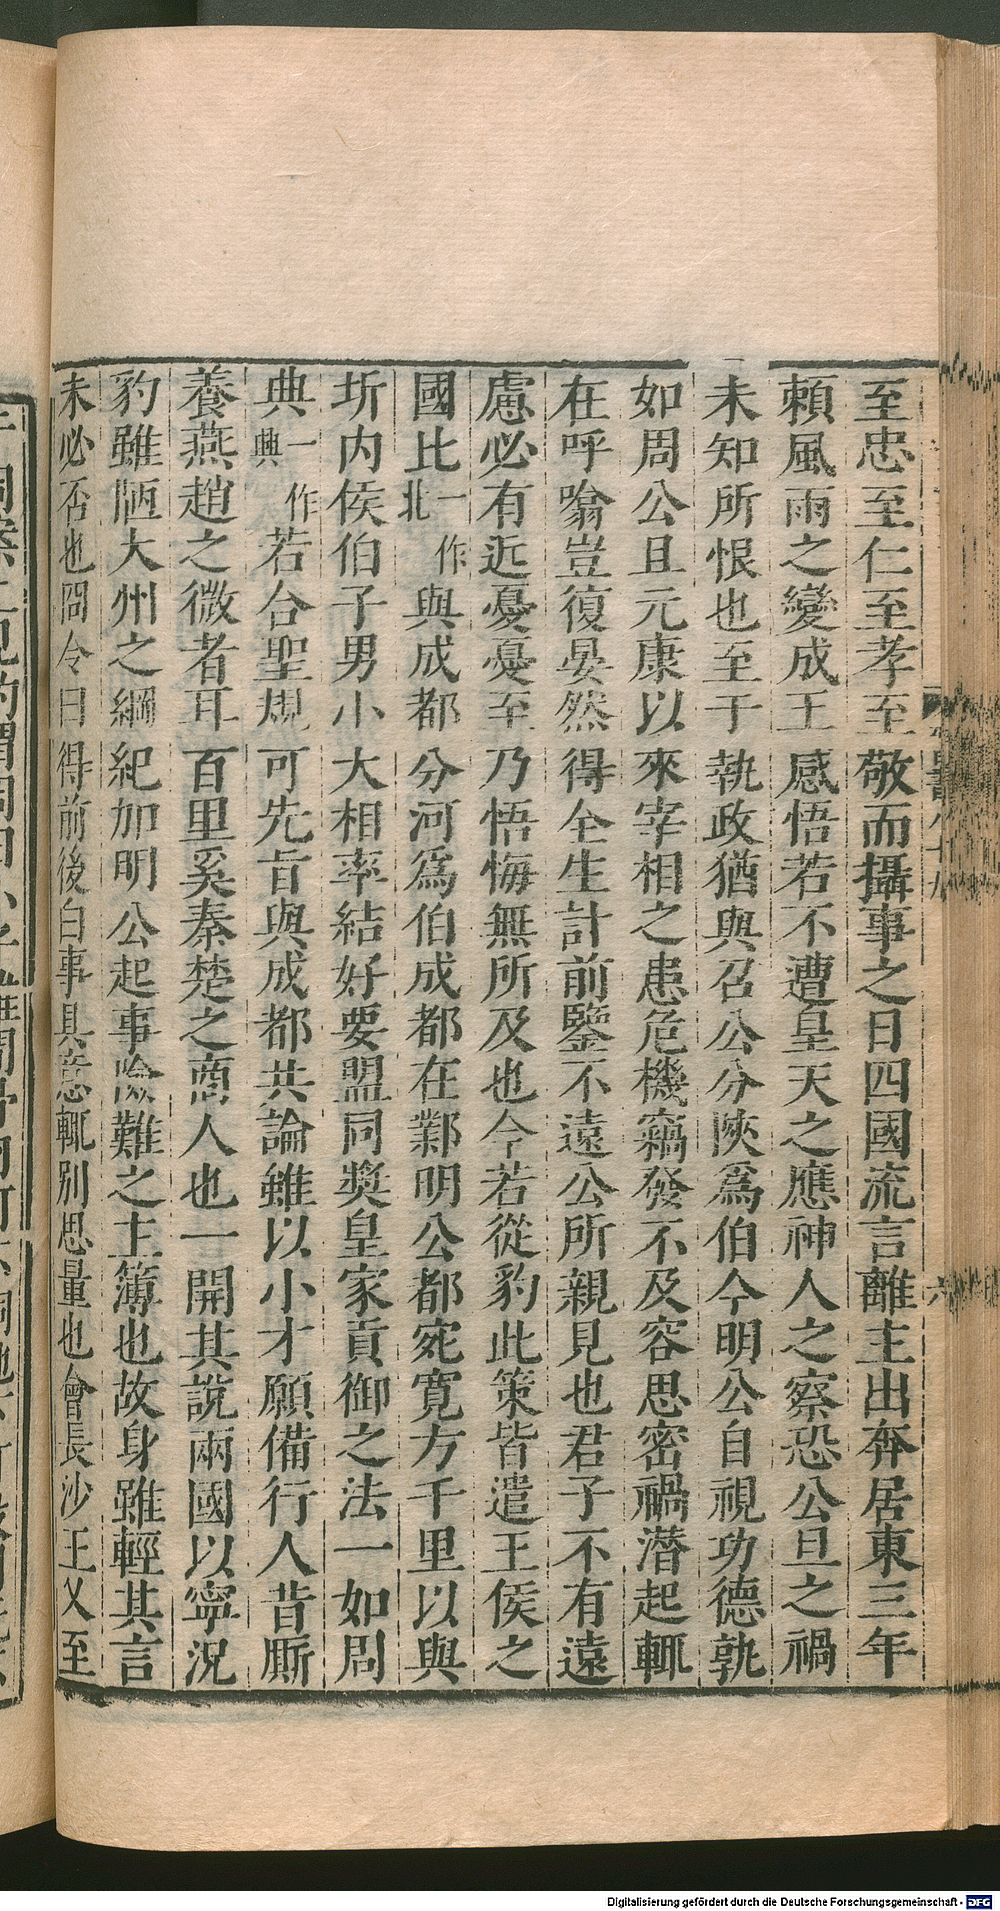 至忠至仁至孝至敬而攝事之日四國流言離主出奔居東三年
賴風雨之變成王感悟若不遭皇天之應神人之察恐公旦之禍
未知所恨也至于執政猶與召公分陝爲伯今明公自視功德孰
如周公且元康以來宰相之患危機竊發不及容思密禍潜起輒
在呼噏豈復晏然得全生計前鑒不遠公所親見也君子不有遠
慮必有近憂憂至乃悟悔無所及也今若從豹此策皆遣王侯之
國比一作北與成都分河爲伯成都在鄴明公都宛寛方千里以與
圻内侯伯子男小大相率結好要盟同奬皇家貢御之法一如周
典一作興若合聖規可先旨與成都共論雖以小才願備行人昔厮
養燕趙之微者耳百里奚秦楚之商人也一開其說兩國以寧況
豹雖陋大州之綱紀加明公起事險難之主簿也故身雖輕其言
未必否也冏令曰得前後白事具意輒别思量也會長沙王乂至
Digitalisierung gefördert durch die Deutsche Forschungsgemeinschaft - DFG